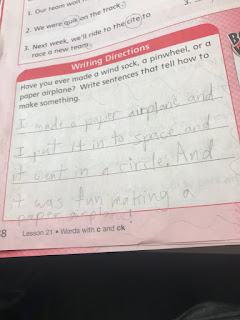 1. Our team won
2. We were quik on the track.
3. Next week, we'll ride to the cite to
race a new team.
3.
Writing Directions
Have you ever made a wind sock, a pinwheel, or a
paper airplane? Write sentences that tell how to
make something.
I made a paper airplane and
I put it in to space and
it went in a circle. And
it was fun making a
paper airplane!
8 Lesson 21 • Words with c and ck